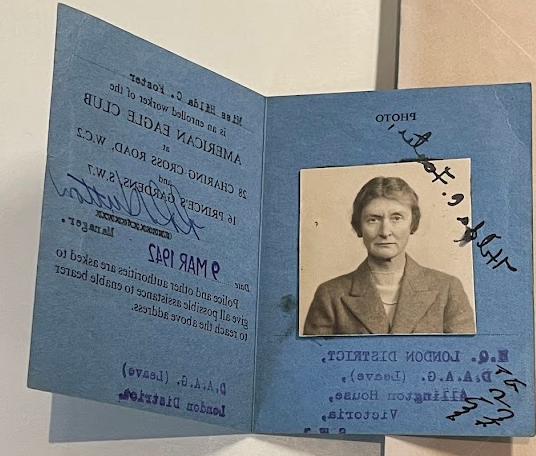 Miss Hilda C. Foster
is an enrolled worker of the
AMERICAN EAGLE CLUB
at
28 CHARING CROSS ROAD, W.C.2
and
16 PRINCE'S GARDENS, S.W.7
Manager.
Date 9 MAR 1942
Police and other authorities are asked to
give all possible assistance to enable bearer
to reach the above address.
D.A.A.G. (Leave)
London District.
PHOTO
Hilda C. Foster
H.Q. LONDON DISTRICT,
D.A.A.G. (Leave),
Allington House,
Victoria,